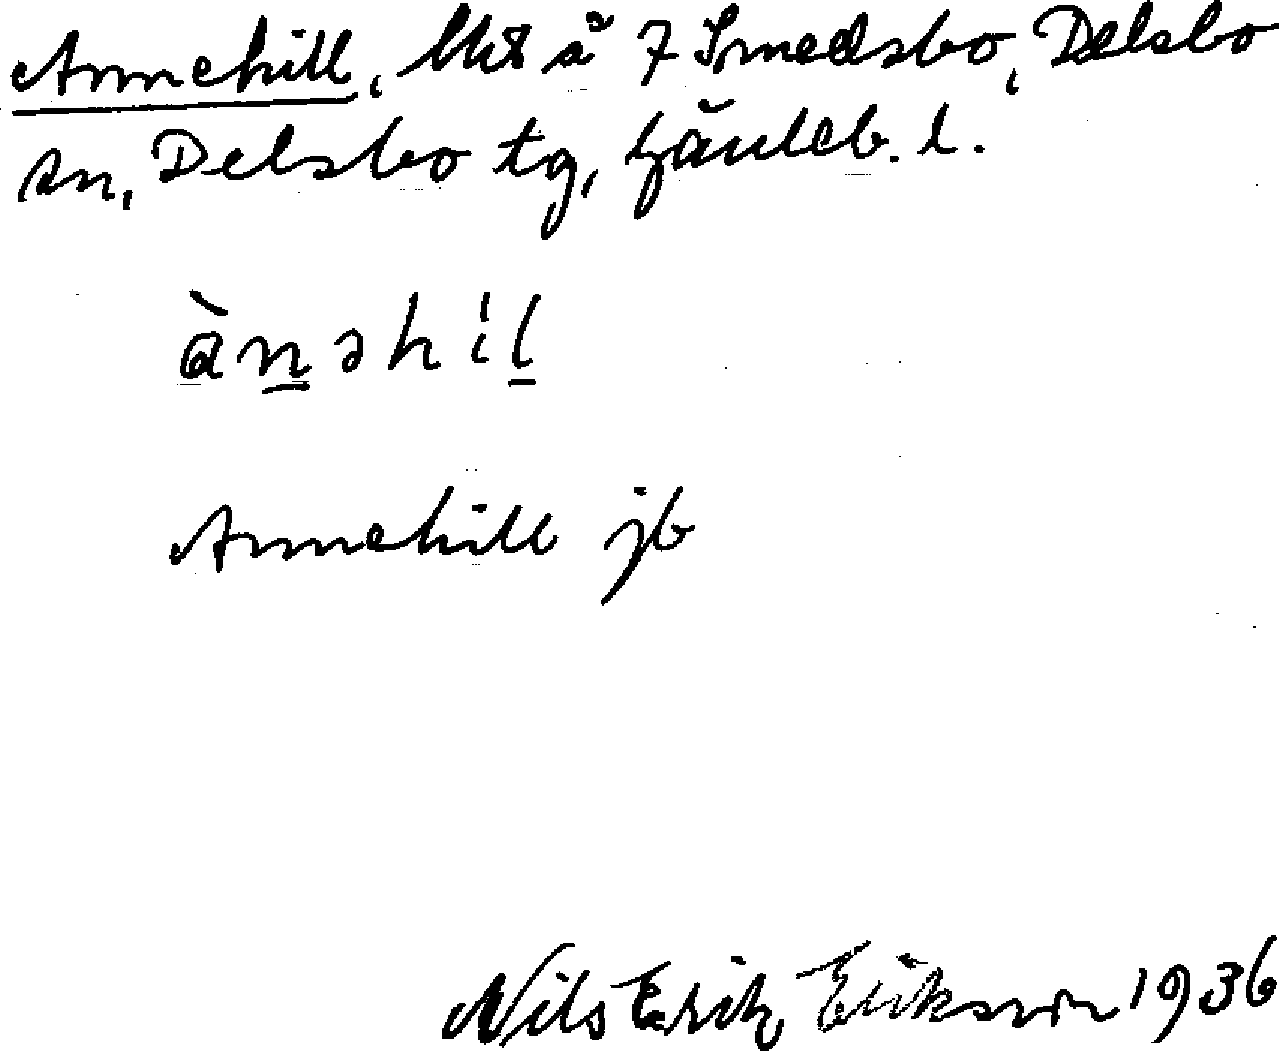 Annehill, lht å 7 Smedsbo, Delsbo
sn, Delsbo tg, Gävleb. l.
ànəhil
Annehill jb
Nils Erik Erikson 1936